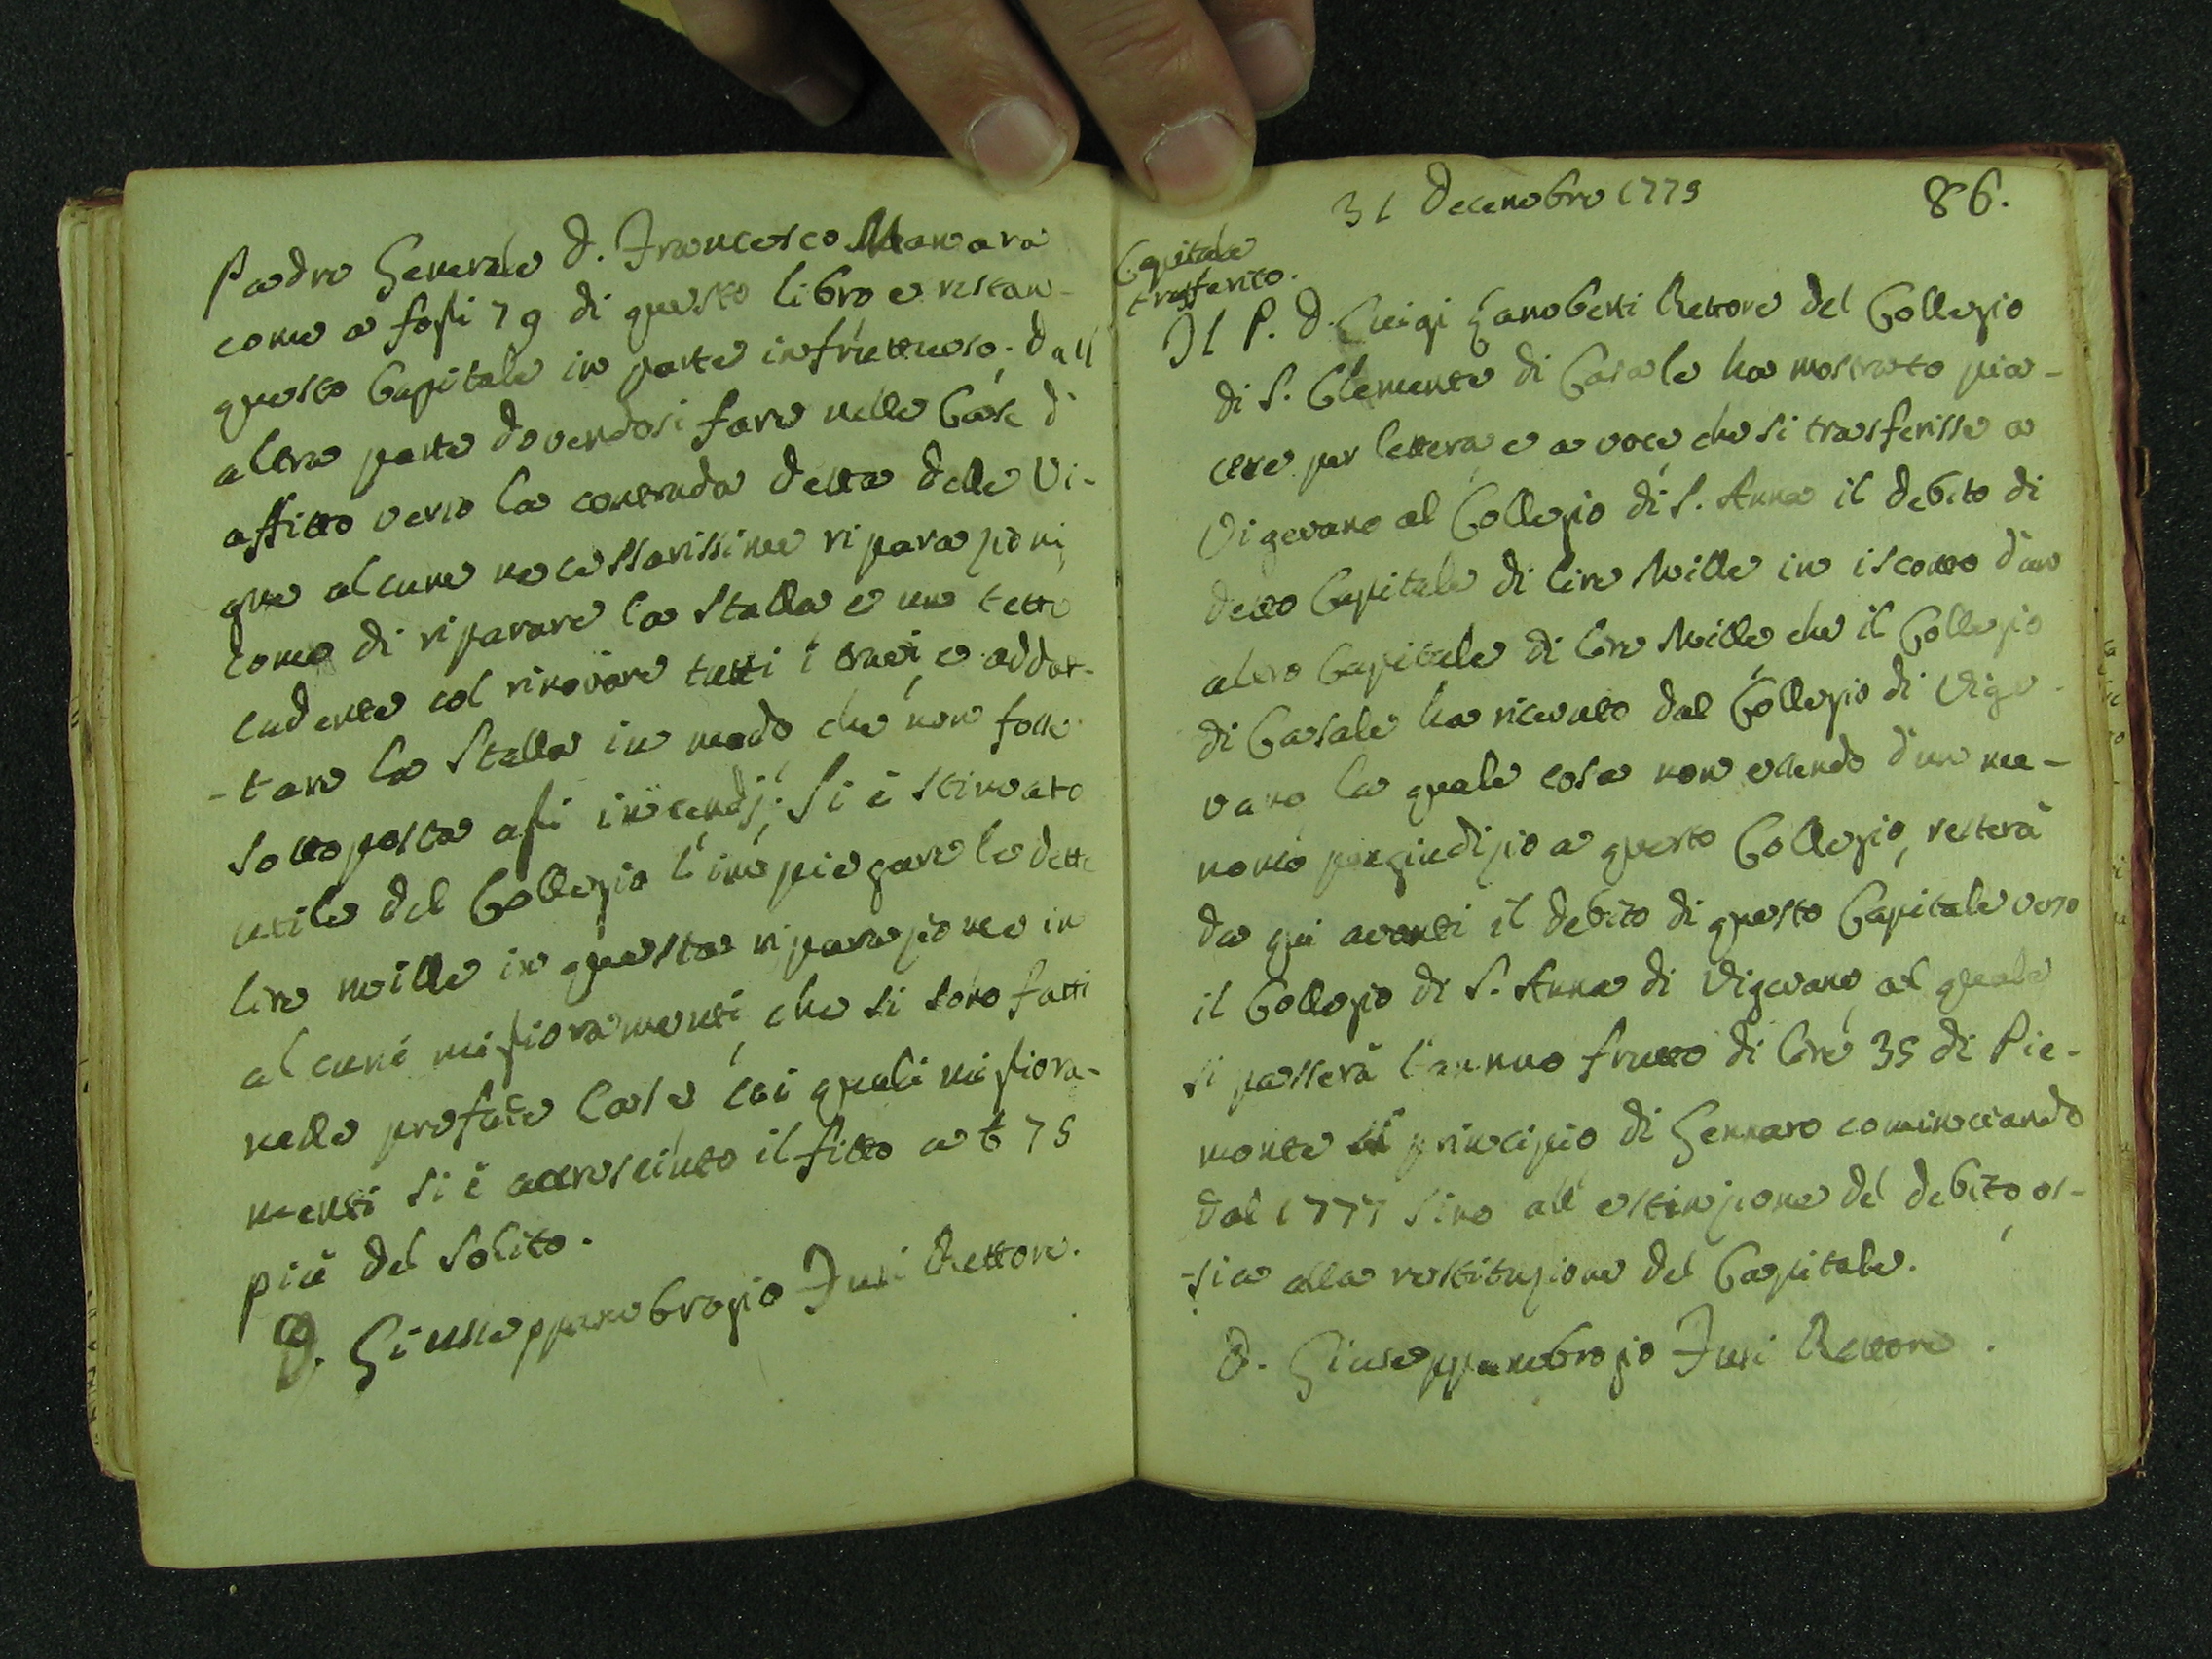 Padre Generale D. Francesco Manara
come a fogli 79 di questo libro e restan-
questo Capitale in parte infruttuoso; dall
altra parte dovendosi fare nelle Case d
affitto verso la contrada detta delle Vi-
gne alcune necessarissime riparazioni,
come di riparare la Stalla e un tetto
cadente col rinovare tutti i travi, e addat-
-tare la Stalla in modo che non fosse
sottoposta agli incendj; Si è stimato
utile del Collegio l'impiegare le dette
lire mille in questa riparazione in
alcuni miglioramenti, che si sono fatti
nelle prefate Case coi quali migliora-
menti si è accresciuto il fitto a ₺ 75
più del Solito.
D. Giuseppambrogio Furi Rettore.
31 Decembre 1779
86.
Capitale
trasferito.
Il P. D. Luigi Zanoberti Rettore del Collegio
di S. Clemente di Casale ha mostrato pia-
cere per lettera e a voce che si trasferisse a
Vigevano al Collegio di S. Anna il debito di
detto Capitale di lire Mille in isconto d'un
altro Capitale di lire Mille che il Collegio
di Casale ha ricevuto dal Collegio di Vige-
vano la quale cosa non essendo d'un me-
nomo pregiudizio a questo Collegio, resterà
da qui avanti il debito di questo Capitale verso
il Collegio di S. Anna di Vigevano, al quale
si passerà l'annuo frutto di lire 35 di Pie-
monte al principio di Gennaro cominciando
dal 1777 sino all'estinzione del debito, os-
-sia alla restituzione del Capitale.
D. Giuseppambrogio Furi Rettore.